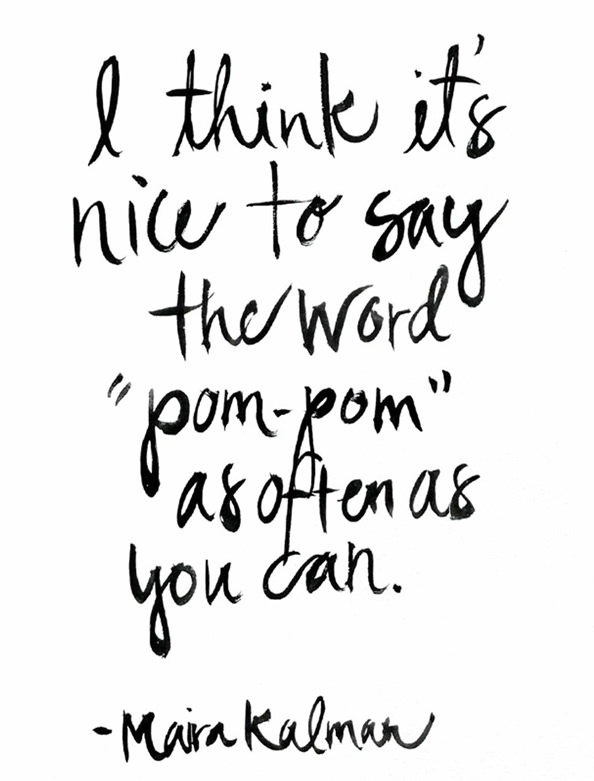 I think it's
nice to say
the word
"pom-pom"
as often as
you can.
-Maira Kalman